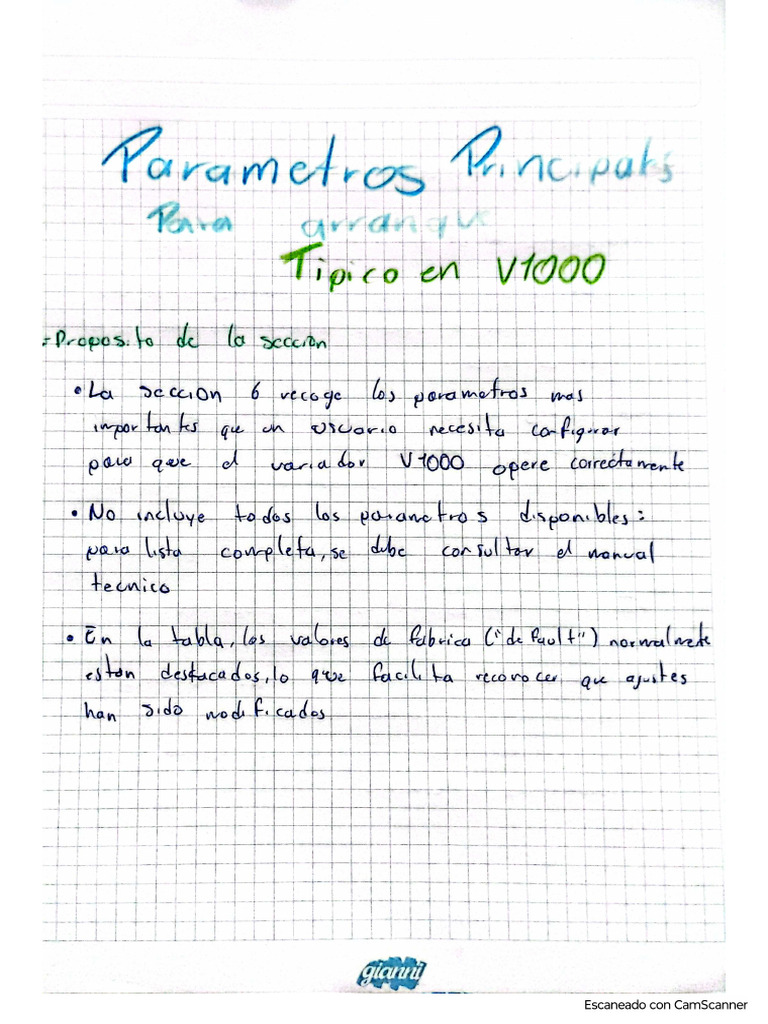 Parametros Principales
Para arranque
Tipico en V1000
-Proposito de la seccion
• La seccion 6 recoge los parametros mas
importantes que un usuario necesita configurar
para que el variador V1000 opere correctamente
• No incluye todos los parametros disponibles:
para lista completa, se debe consultar el manual
tecnico
• En la tabla, los valores de fabrica ("default") normalmente
estan destacados, lo que facilita reconocer que ajustes
han sido modificados
gianni
Escaneado con CamScanner